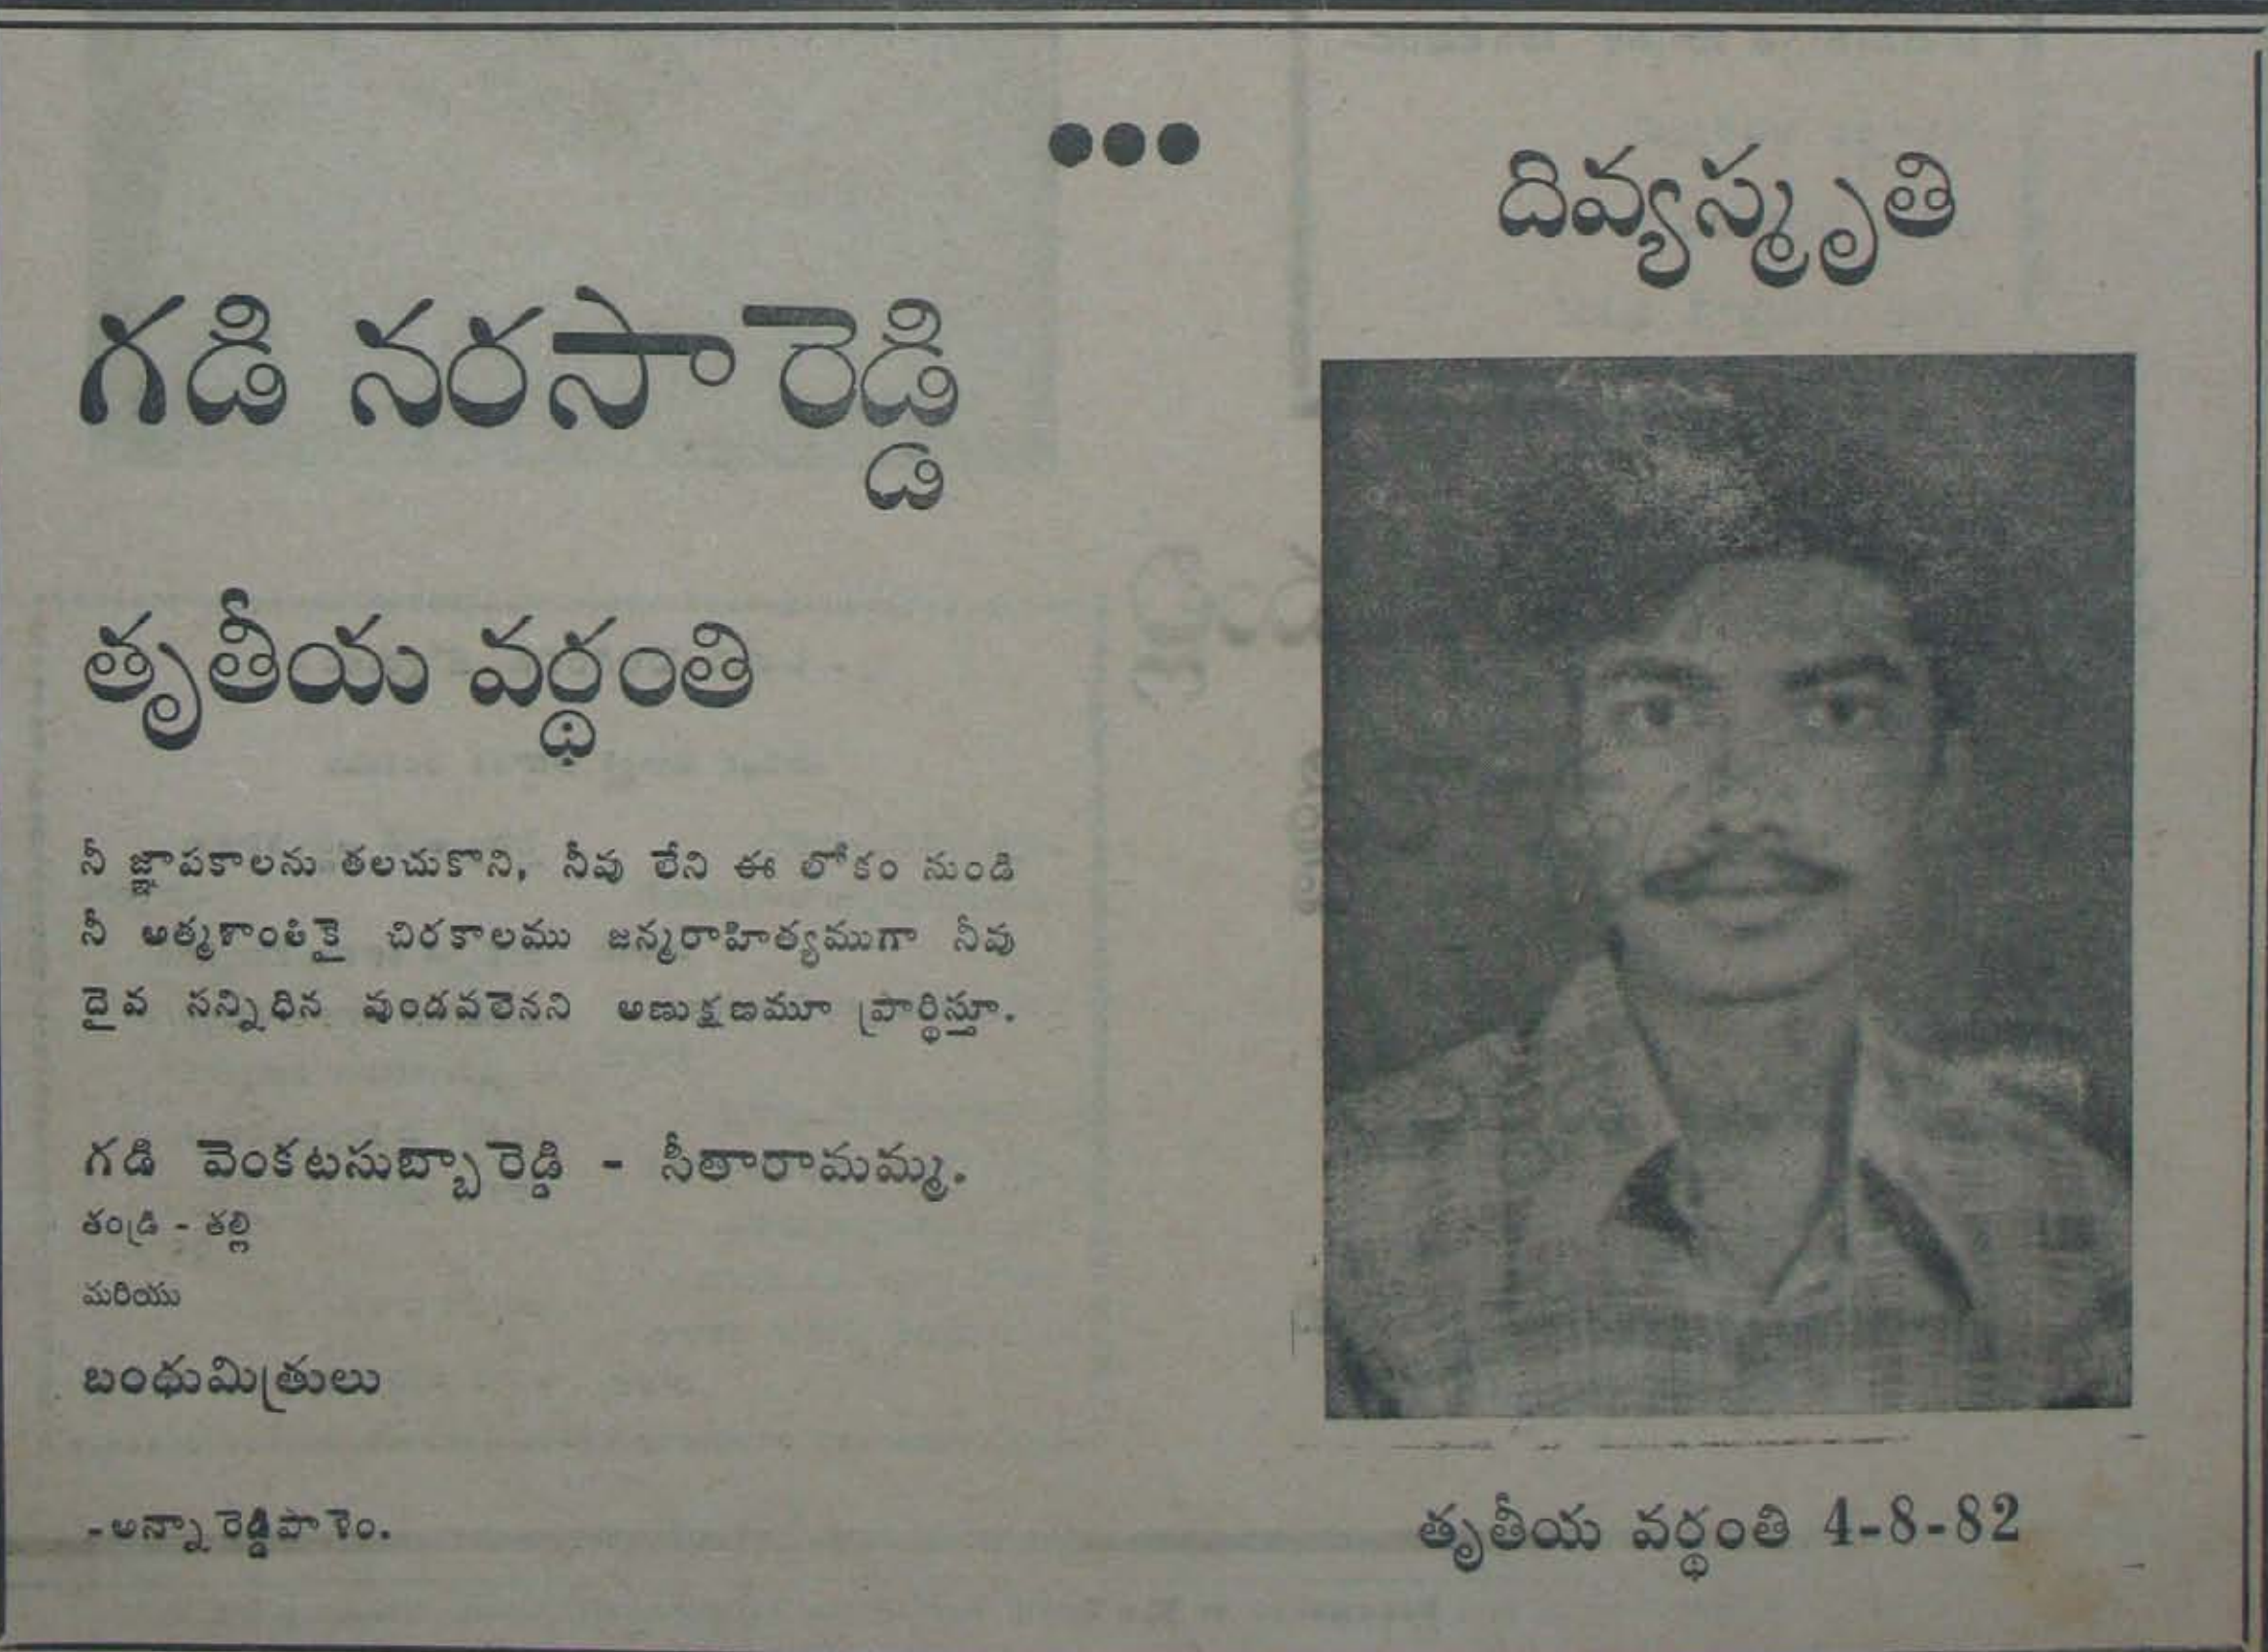 ●●●
దివ్యస్మృతి
గడి నరసారెడ్డి
తృతీయ వర్థంతి
నీ జ్ఞాపకాలను తలచుకొని, నీవు లేని ఈ లోకం నుండి
నీ ఆత్మశాంతికై చిరకాలము జన్మరాహిత్యముగా నీవు
దైవ సన్నిధిన వుండవలెనని అణుక్షణమూ ప్రార్థిస్తూ.
గడి వెంకటసుబ్బారెడ్డి - సీతారామమ్మ.
తండ్రి - తల్లి
మరియు
బంధుమిత్రులు
-అన్నారెడ్డిపాళెం.
తృతీయ వర్థంతి 4-8-82